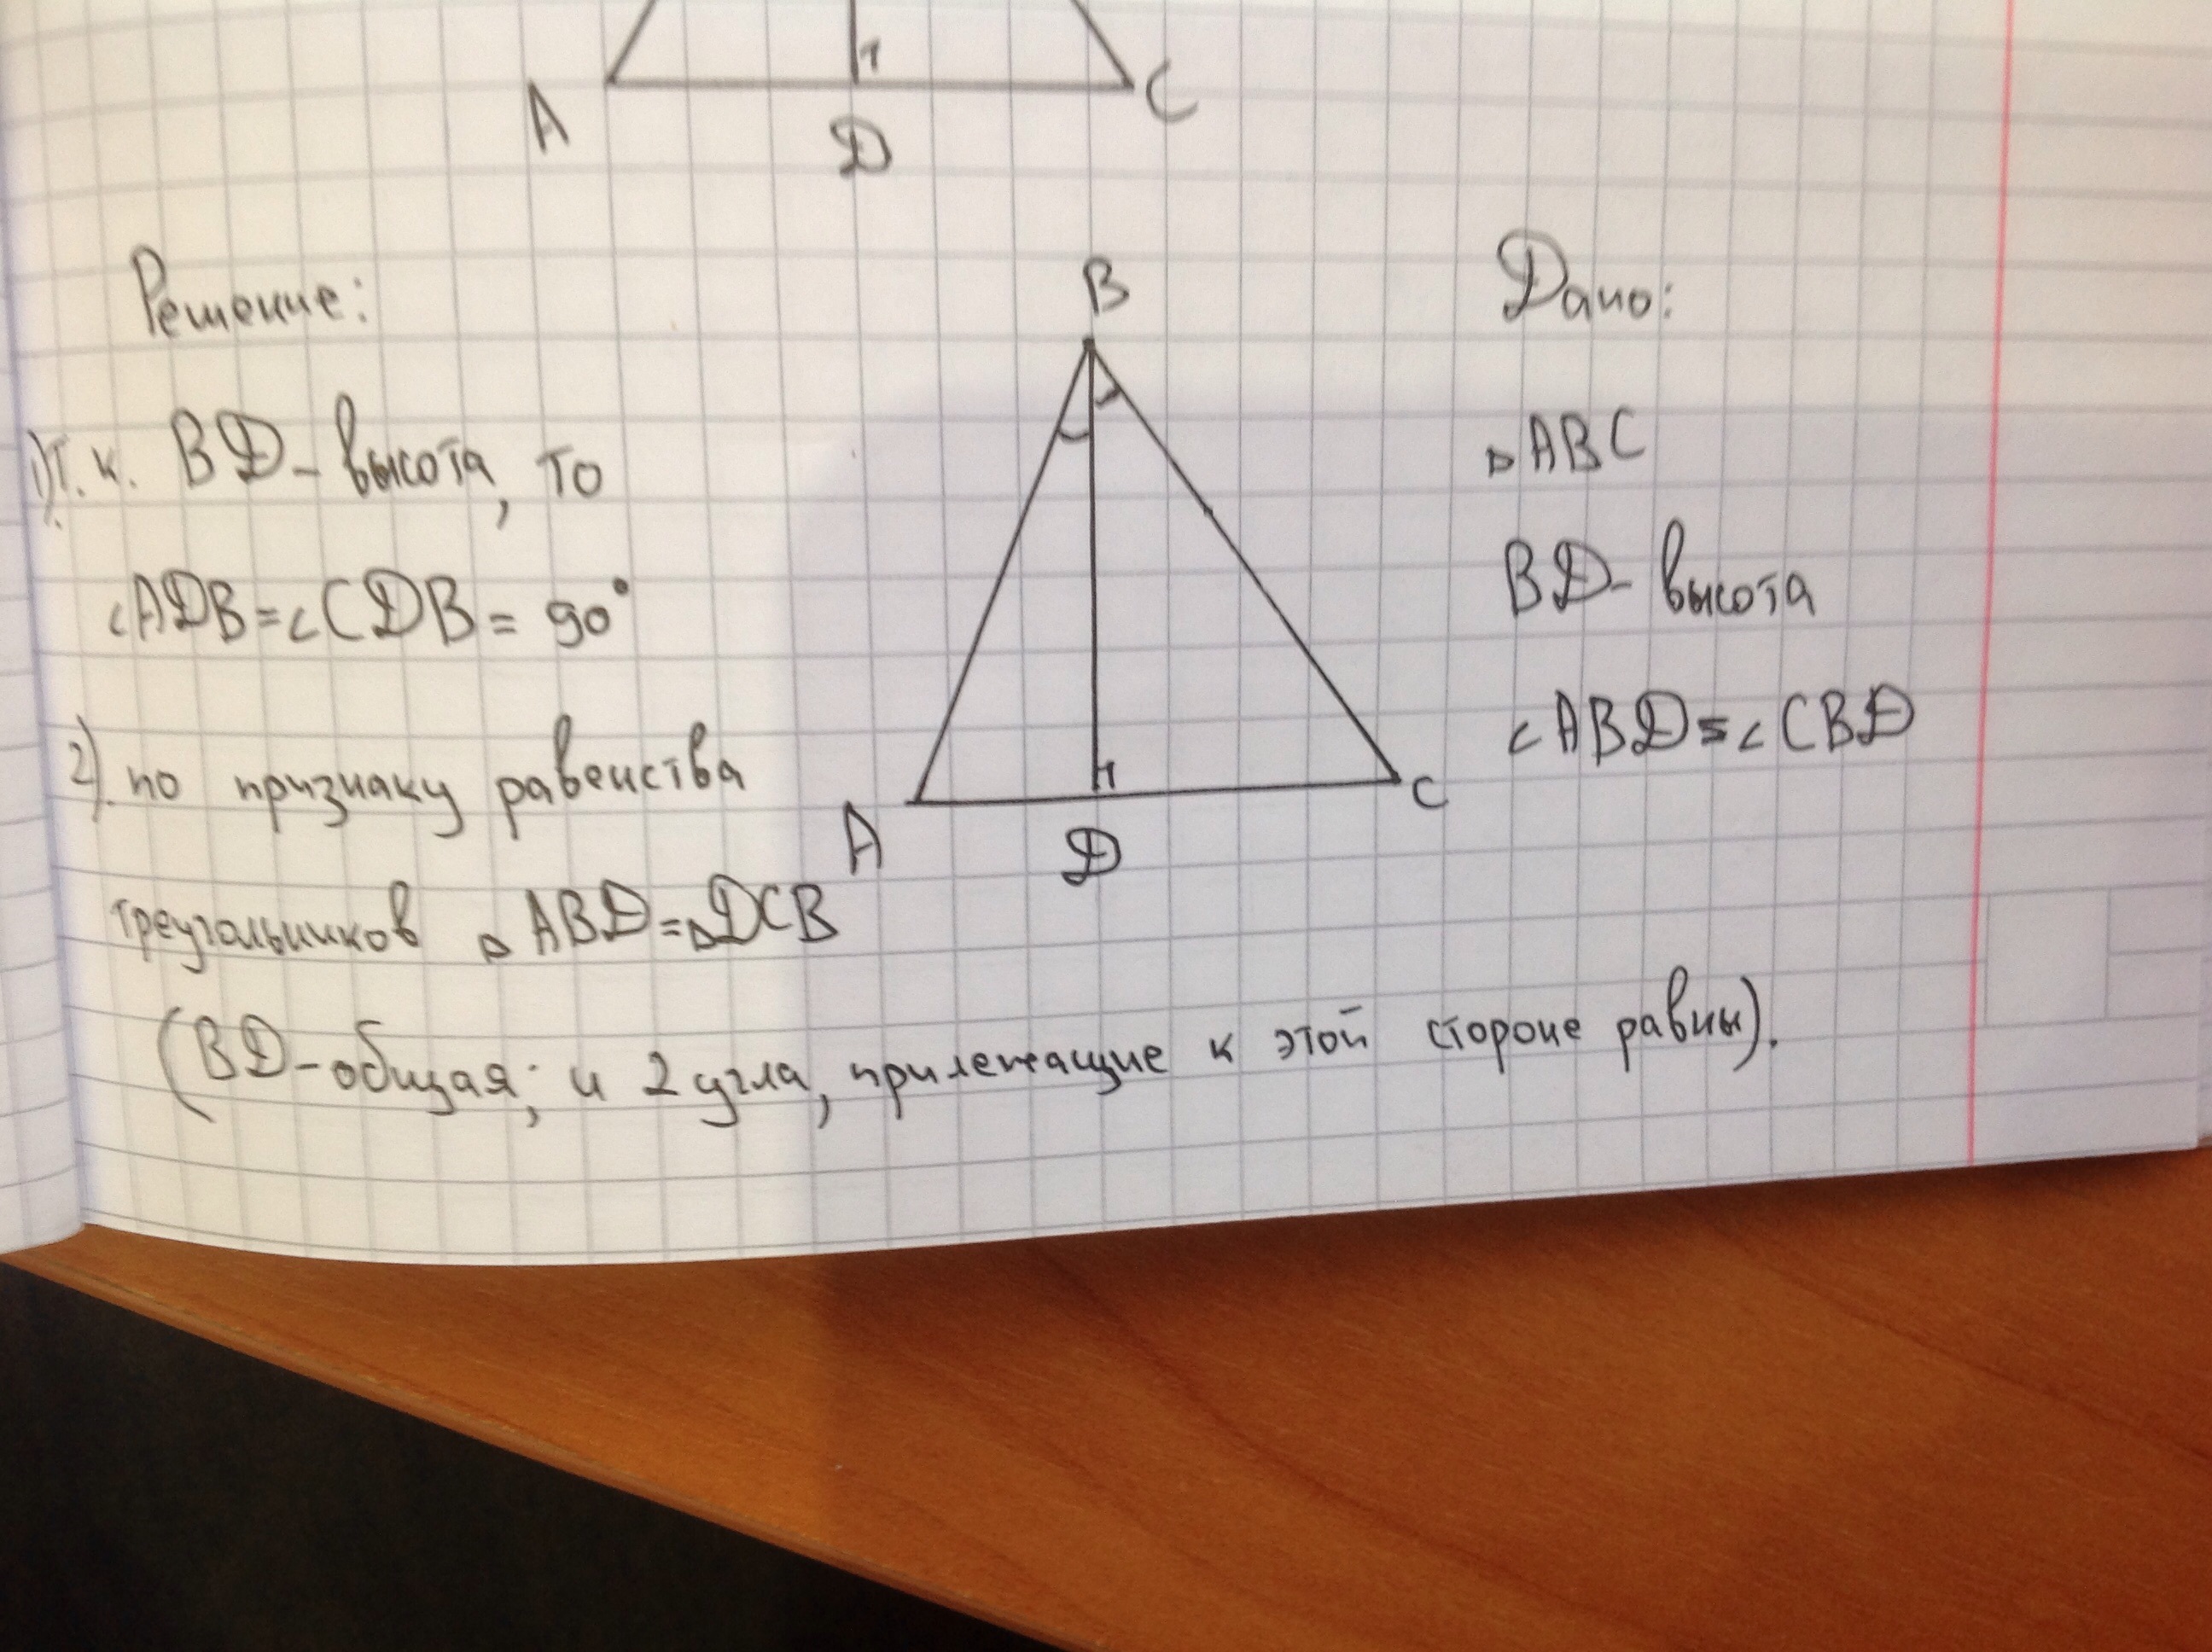 A
D
C
Решение:
B
Дано:
1) Т.к. BD - высота, то
∠ADB=∠CDB= 90°
△ABC
BD- высота
∠ABD=∠CBD
2). по признаку равенства
A
D
C
треугольников △ABD=△DCB
(BD-общая; и 2 угла, прилежащие к этой стороне равны).